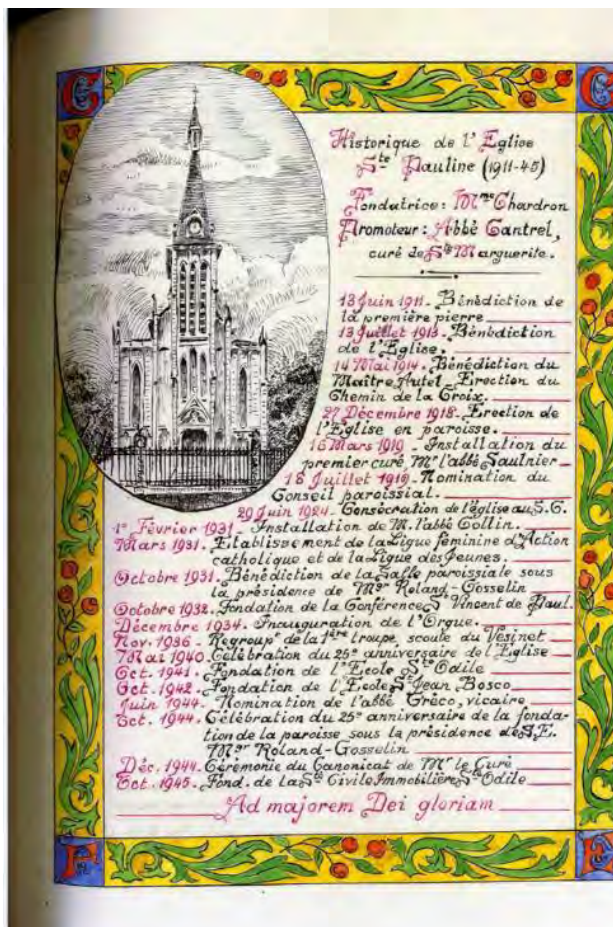 Historique de l'Eglise
Ste Pauline (1911-45)
Fondatrice: Mme Chardron
Promoteur: Abbé Cantrel,
curé de Ste Marguerite.
18 Juin 1911. Bénédiction de
la première pierre
13 Juillet 1913. Bénédiction
de l'Eglise.
14 Mai 1914. Bénédiction du
Maître Autel - Erection du
Chemin de la Croix.
27 Décembre 1918. Erection de
l'Eglise en paroisse.
16 Mars 1919 - Installation du
premier curé, Mr l'abbé Saulnier
18 Juillet 1919. Nomination du
Conseil paroissial.
29 Juin 1924. Consécration de l'église au S.C.
1er Février 1931 - Installation de M. l'abbé Collin.
Mars 1931. Etablissement de la Ligue féminine d'Action
catholique et de la Ligue des Jeunes.
Octobre 1931. Bénédiction de la Salle paroissiale sous
la présidence de Mgr Roland-Gosselin
Octobre 1932. Fondation de la Conférence St Vincent de Paul.
Décembre 1934. Inauguration de l'Orgue.
Nov. 1936 - Regroupt de la 1ère troupe scoute du Vesinet
7 Mai 1940. Célébration du 25e anniversaire de l'Eglise
Oct. 1941. Fondation de l'Ecole Ste Odile
Oct. 1942. Fondation de l'Ecole St Jean Bosco
Juin 1944. Nomination de l'abbé Gréco, vicaire
Oct. 1944. Célébration du 25e anniversaire de la fonda-
tion de la paroisse sous la présidence de S.E.
Mgr Roland-Gosselin
Déc. 1944. Cérémonie du Canonicat de Mr le Curé
Oct. 1945. Fond. de la Sté Civile Immobilière Ste Odile
Ad majorem Dei gloriam